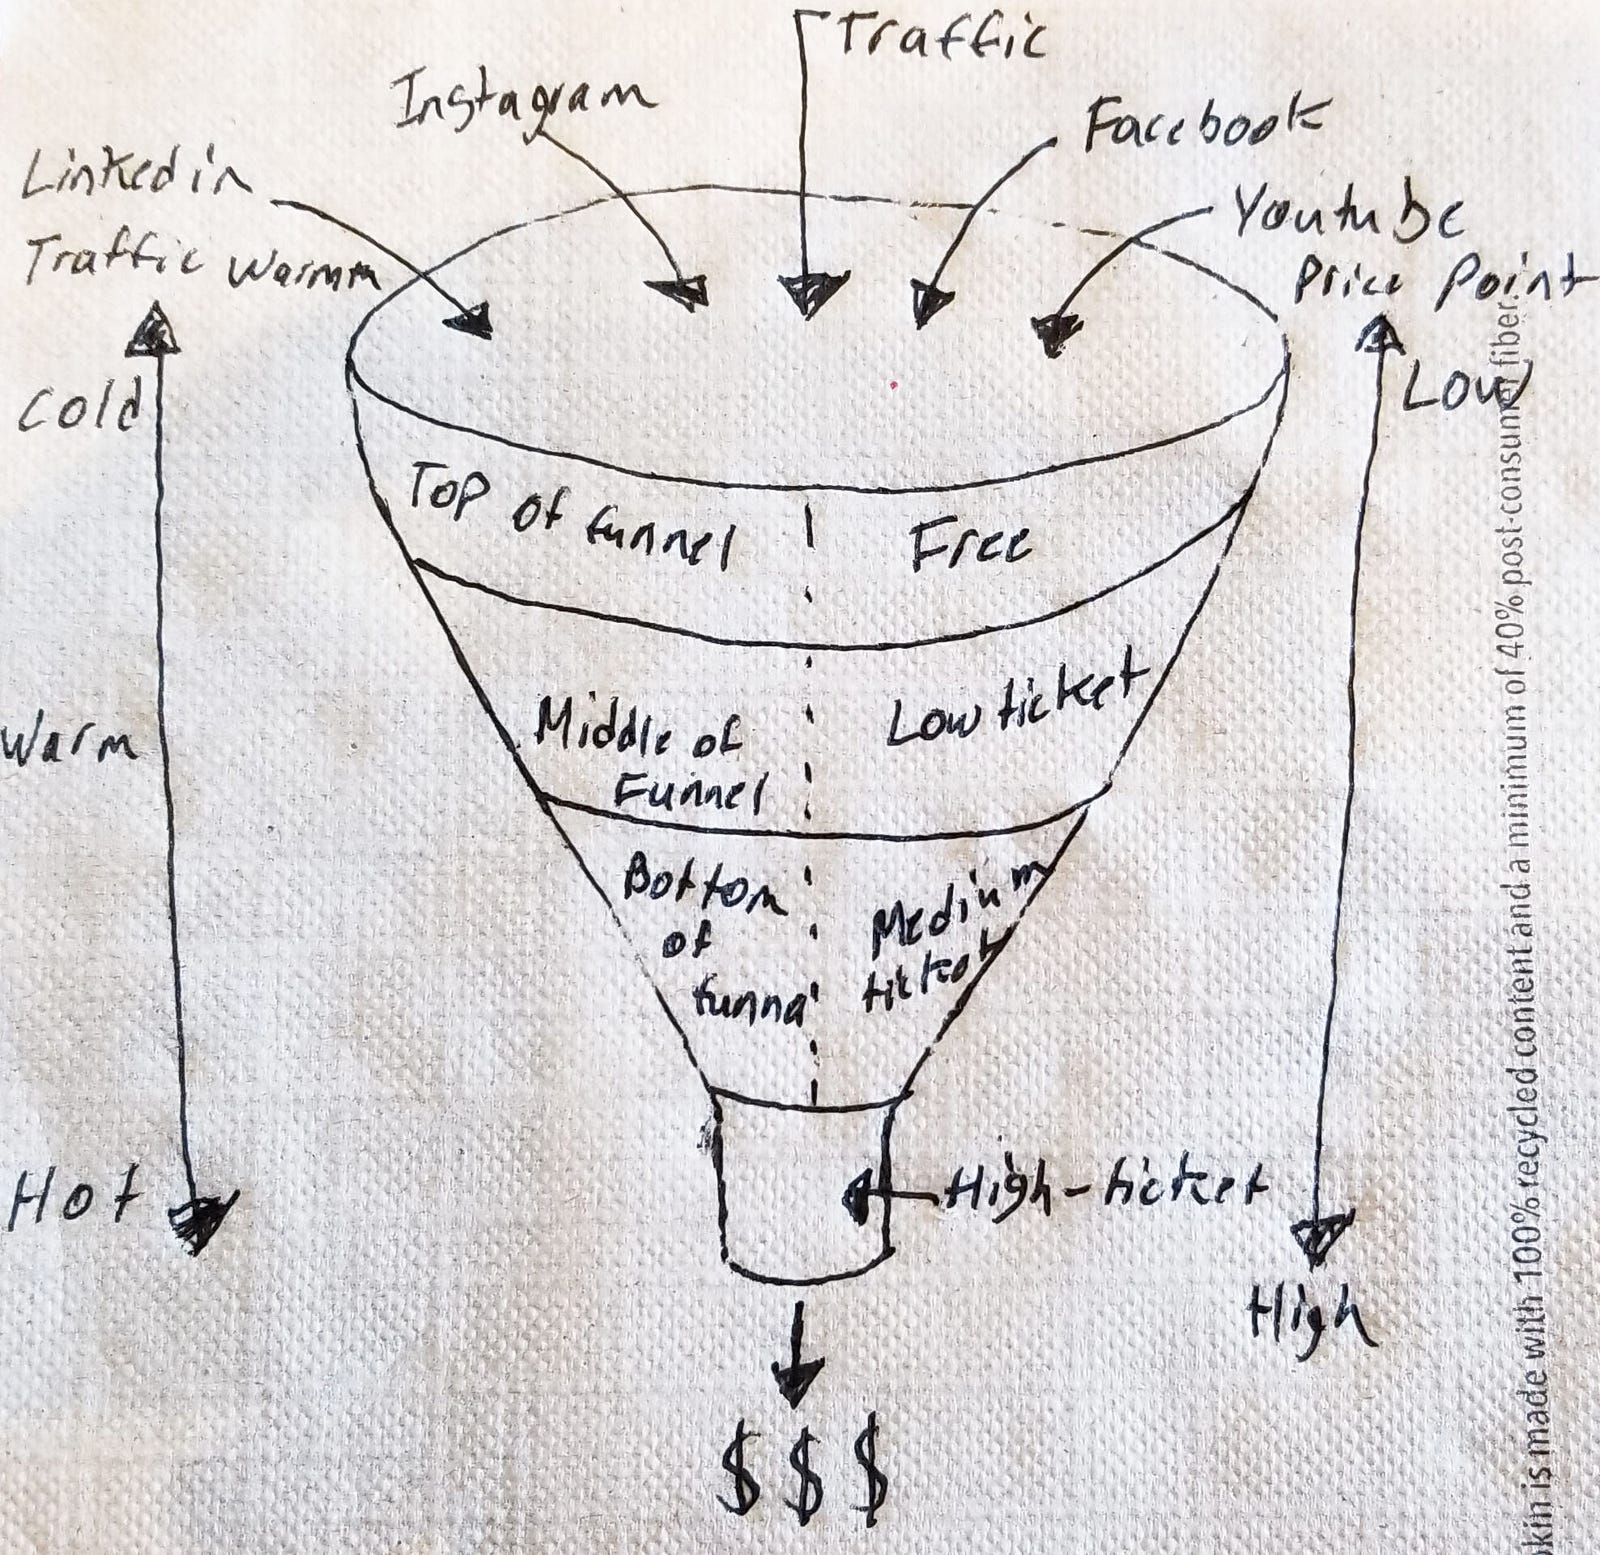 Traffic
Instagram
Facebook
Linkedin
Youtube
Traffic Warmm
Price Point
Cold
Low
Top of funnel
Free
Middle of
Funnel
Low ticket
Warm
Bottom
of
funnel
Medium
ticket
Hot
High-ticket
High
$ $ $
kin is made with 100% recycled content and a minimum of 40% post-consumer fiber.